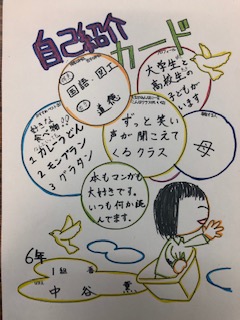 自己紹介
カード
国語・図工
道徳
大学生と
高校生の
子どもが
います
好きな
食べ物
1 カレーうどん
2 モンブラン
3 グラタン
ずっと笑い
声が聞こえて
くるクラス
母
本もマンガも
大好きです。
いつも何か読
んでます。
6年
1組
中谷